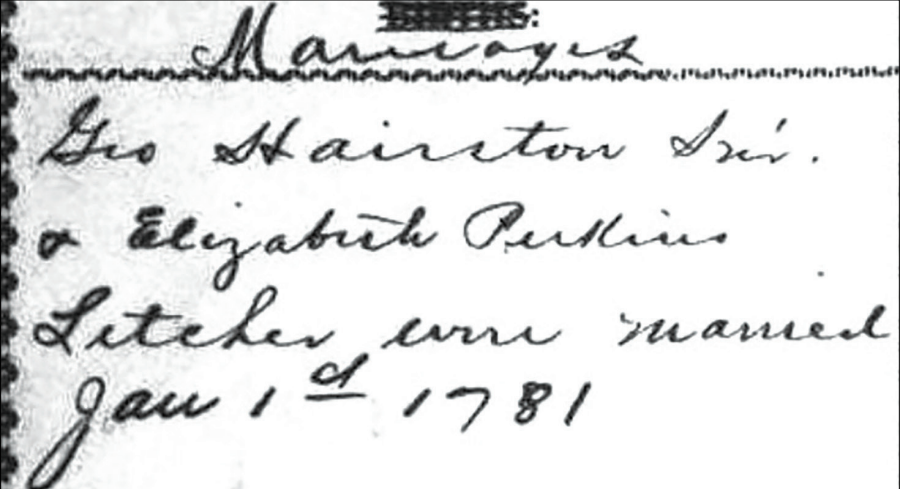 BIRTHS:
Marriages
Geo Hairston Snr.
& Elizabeth Perkins
Letcher were married
Jan 1d 1781